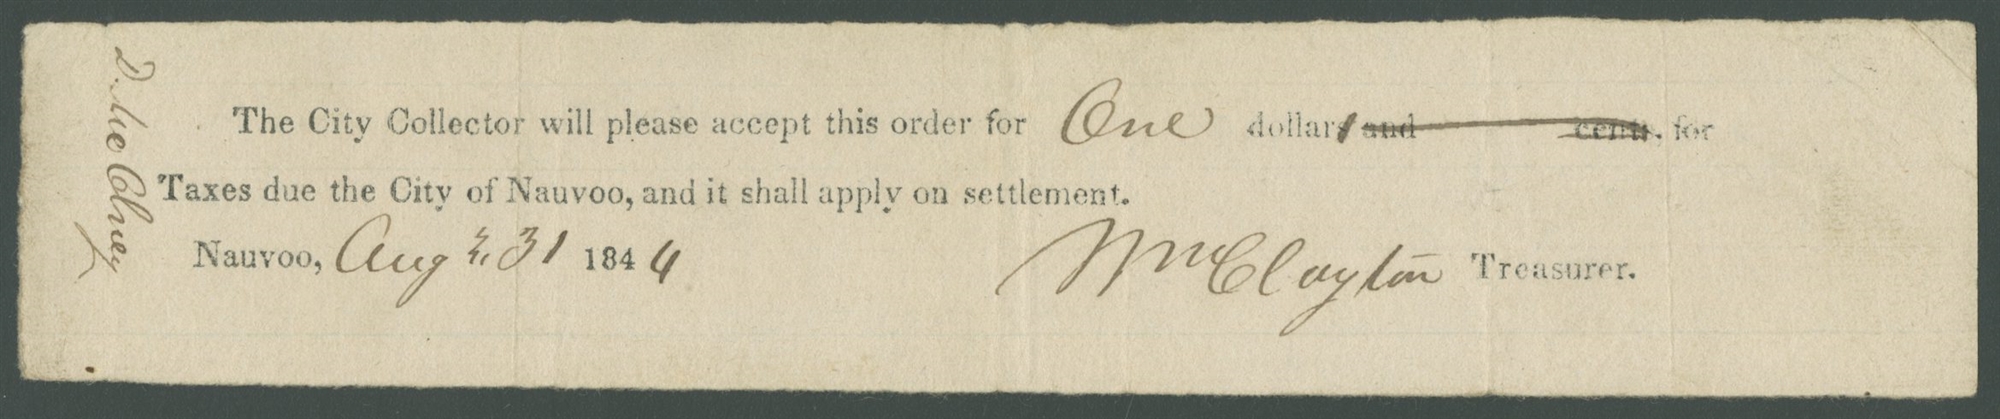 The City Collector will please accept this order for One dollar and cents, for
Taxes due the City of Nauvoo, and it shall apply on settlement.
Nauvoo, Augt. 31 1844 Wm Clayton Treasurer.
Olney